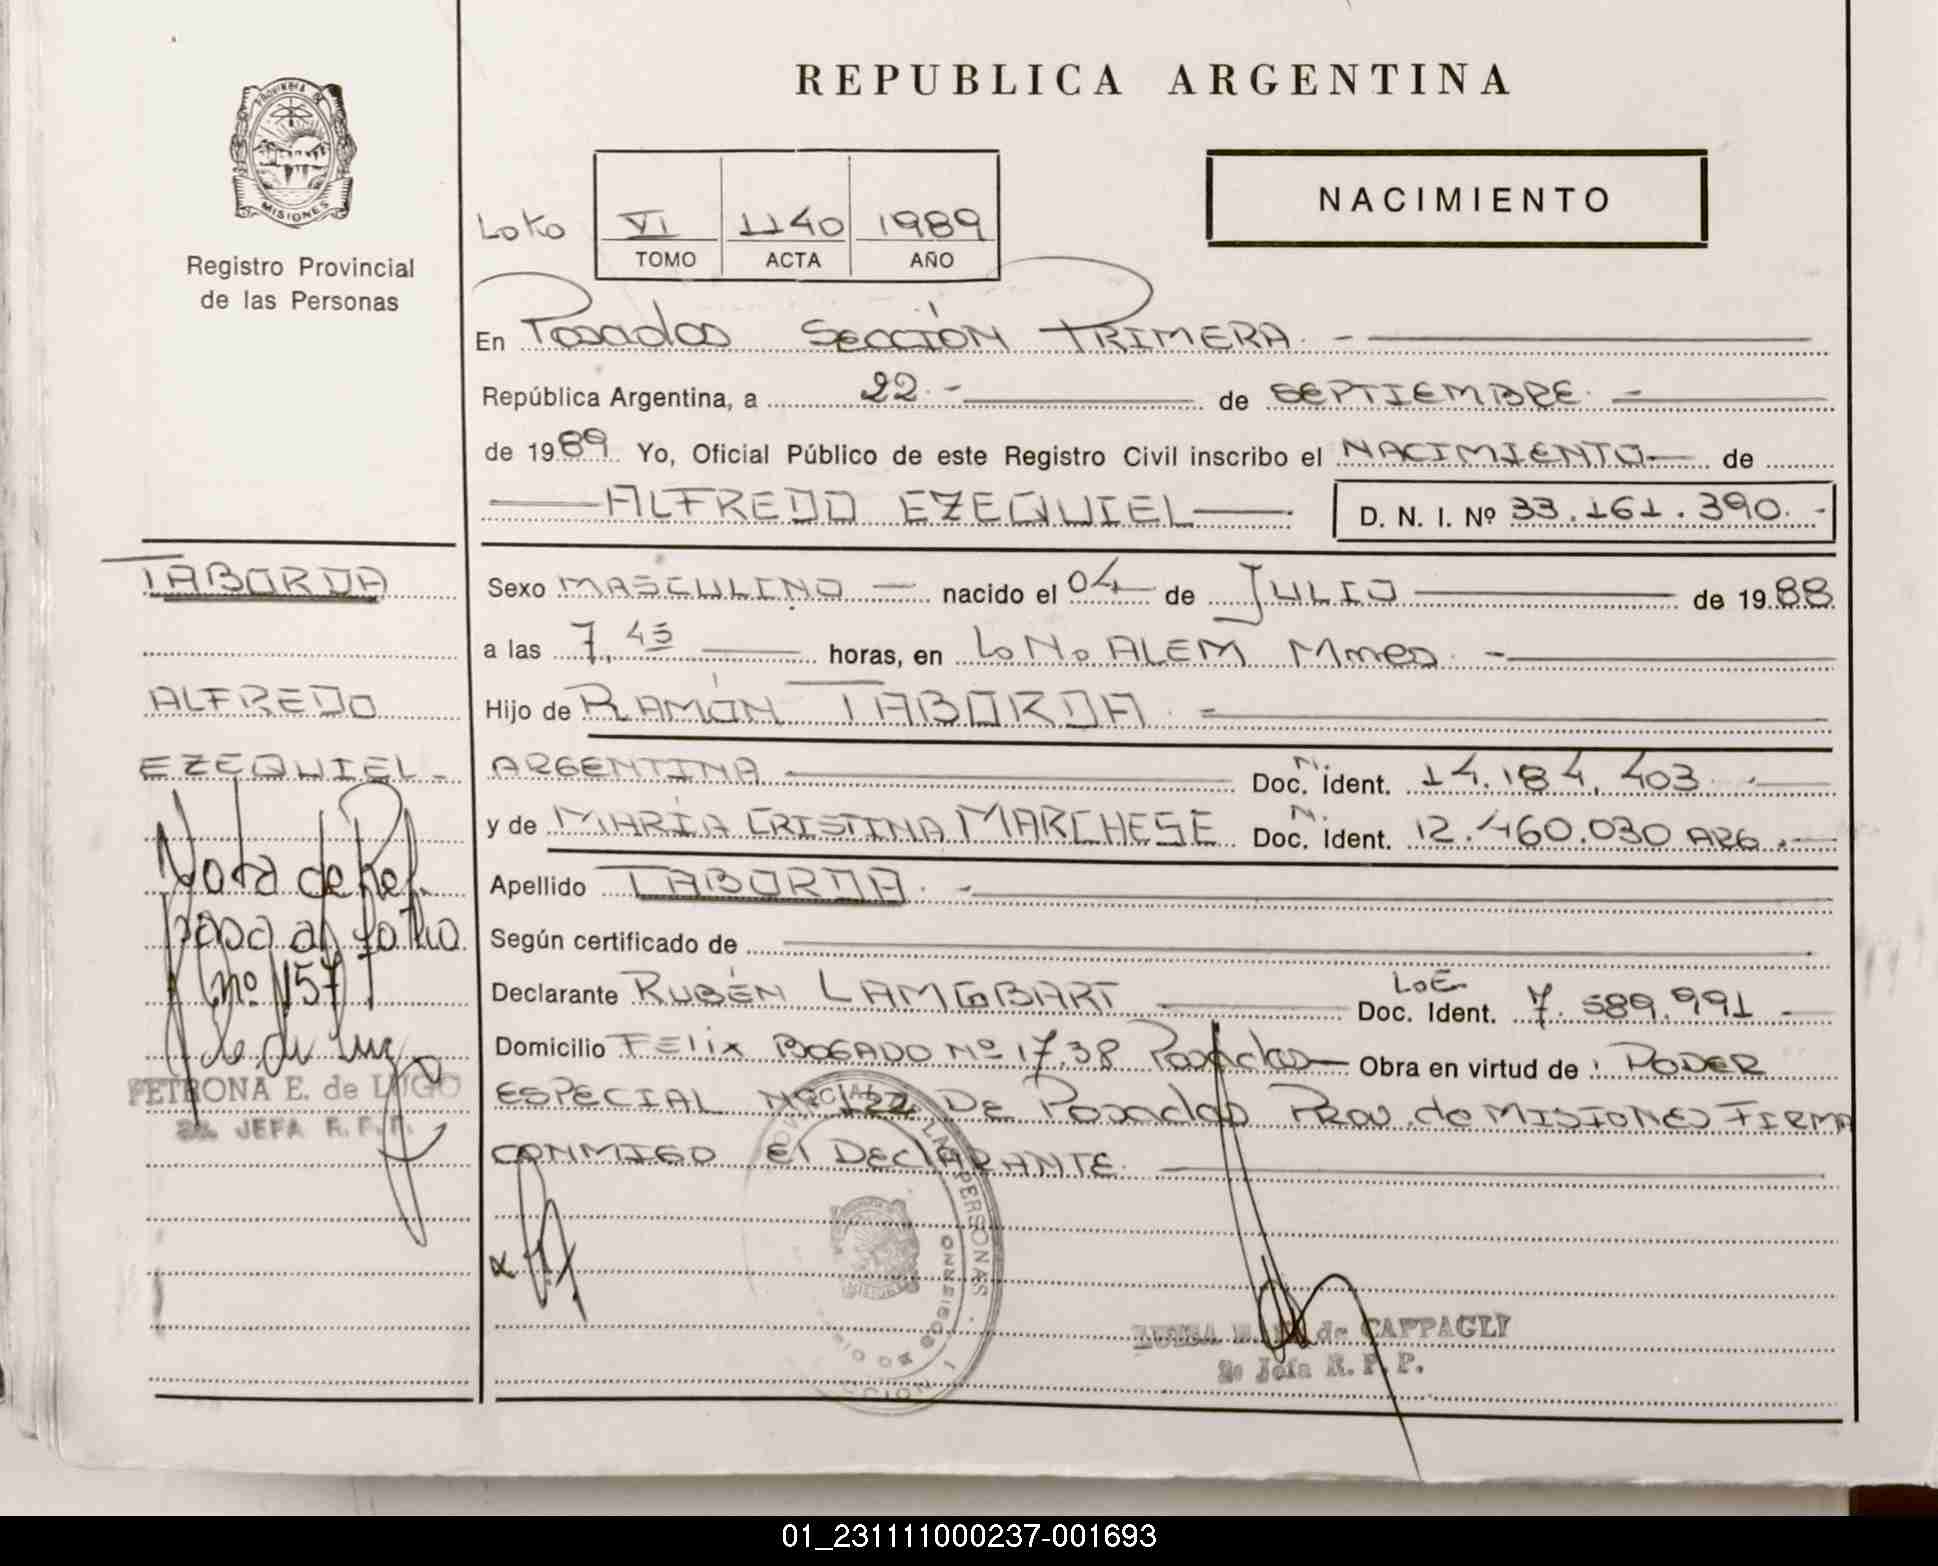 REPUBLICA ARGENTINA
PROVINCIA DE
MISIONES
Registro Provincial
de las Personas
NACIMIENTO
VI 1140 1989
TOMO ACTA AÑO
En Posadas SECCIÓN PRIMERA. -
República Argentina, a 22. - de SEPTIEMBRE. -
de 1989. Yo, Oficial Público de este Registro Civil inscribo el NACIMIENTO de
ALFREDO EZEQUIEL D. N. I. Nº 33.161.390. -
TABORDA
ALFREDO
EZEQUIEL -
Nota de Ref.
pasa al folio
nº 157
PETRONA E. de LUGO
2a. JEFA R. P. P.
Sexo MASCULINO - nacido el 04 de JULIO de 1988
a las 7,45 horas, en L. N. ALEM Mnes. -
Hijo de RAMÓN TABORDA. -
ARGENTINA Doc. Ident. 14.184.403. -
y de MARÍA CRISTINA MARCHESE Doc. Ident. 12.460.030 ARG. -
Apellido TABORDA. -
Según certificado de
Declarante RUBÉN Doc. Ident. L.E. 7.589.991 -
Domicilio FELIX BOGADO Nº 1738 Posadas - Obra en virtud de : PODER
ESPECIAL Nº 122 DE Posadas PROV. de MISIONES FIRMA
CONMIGO El DEClARANTE.
x
LAS PERSONAS
de CAPPAGLI
2a Jefa R. P. P.
01_231111000237-001693